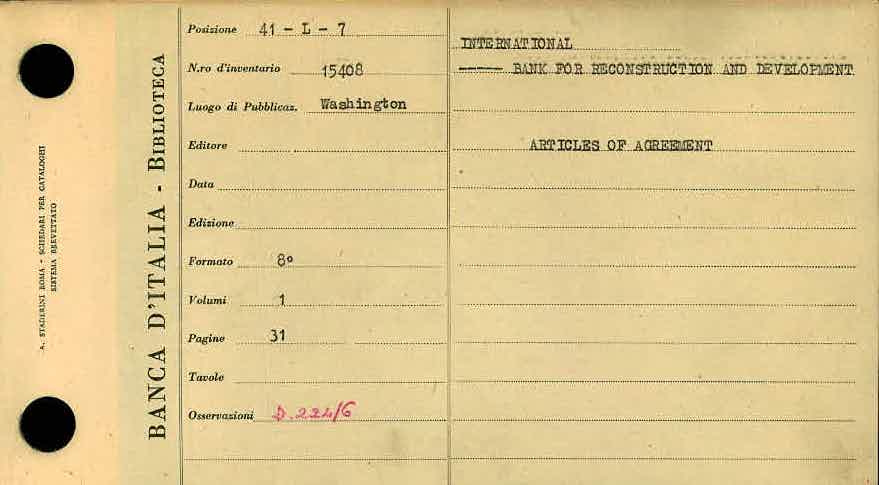 A. STADERINI ROMA - SCHEDARI PER CATALOGHI
SISTEMA BREVETTATO
BANCA D'ITALIA - BIBLIOTECA
Posizione 41 - L - 7
N.ro d'inventario 15408
Luogo di Pubblicaz. Washington
Editore
Data
Edizione
Formato 8º
Volumi 1
Pagine 31
Tavole
Osservazioni D.224/6
INTERNATIONAL
----- BANK FOR RECONSTRUCTION AND DEVELOPMENT
ARTICLES OF AGREEMENT